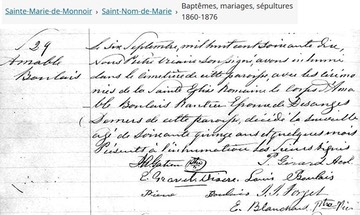 Sainte-Marie-de-Monnoir > Saint-Nom-de-Marie > Baptêmes, mariages, sépultures
1860-1876
S 29
Amable
Boulais
Le six Septembre, mil huit cent soixante dix,
Nous Prêtre Vicaire soussigné, avons inhumé
dans le cimetière de cette paroisse, avec les cérémo
nies de la Sainte Eglise Romaine le Corps d'Ama
ble Boulais Epouse de Désanges
de cette paroisse, décédé la surveille
agé de Soixante quinze ans et quelques mois
Présents à l'inhumation les Sieurs
E. Gravel Diacre Louis Boulais
Pierre Boulais J. J.
E. Blanchard, Ptre Vic.